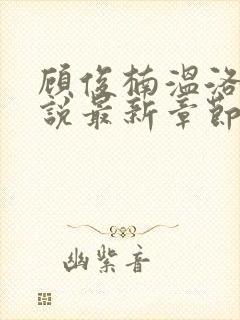 顾俊楠温洛
说最新章節
幽紫音